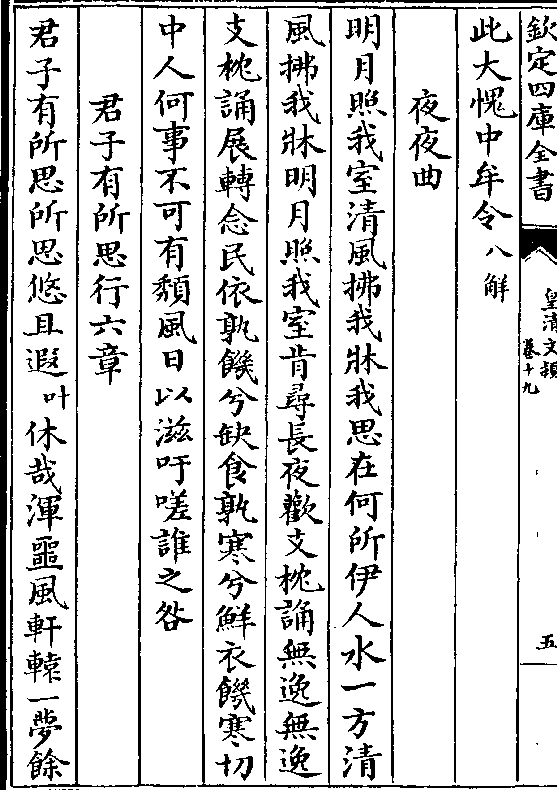 欽定四庫全書
皇清文穎
卷十九
五
此大愧中牟令八解
夜夜曲
明月照我室清風拂我牀我思在何所伊人水一方清
風拂我牀明月照我室肯尋長夜歡支枕誦無逸無逸
支枕誦展轉念民依孰饑兮缺食孰寒兮鮮衣饑寒切
中人何事不可有頽風日以滋吁嗟誰之咎
君子有所思行六章
君子有所思所思悠且遐叶休哉渾噩風軒轅一夢餘